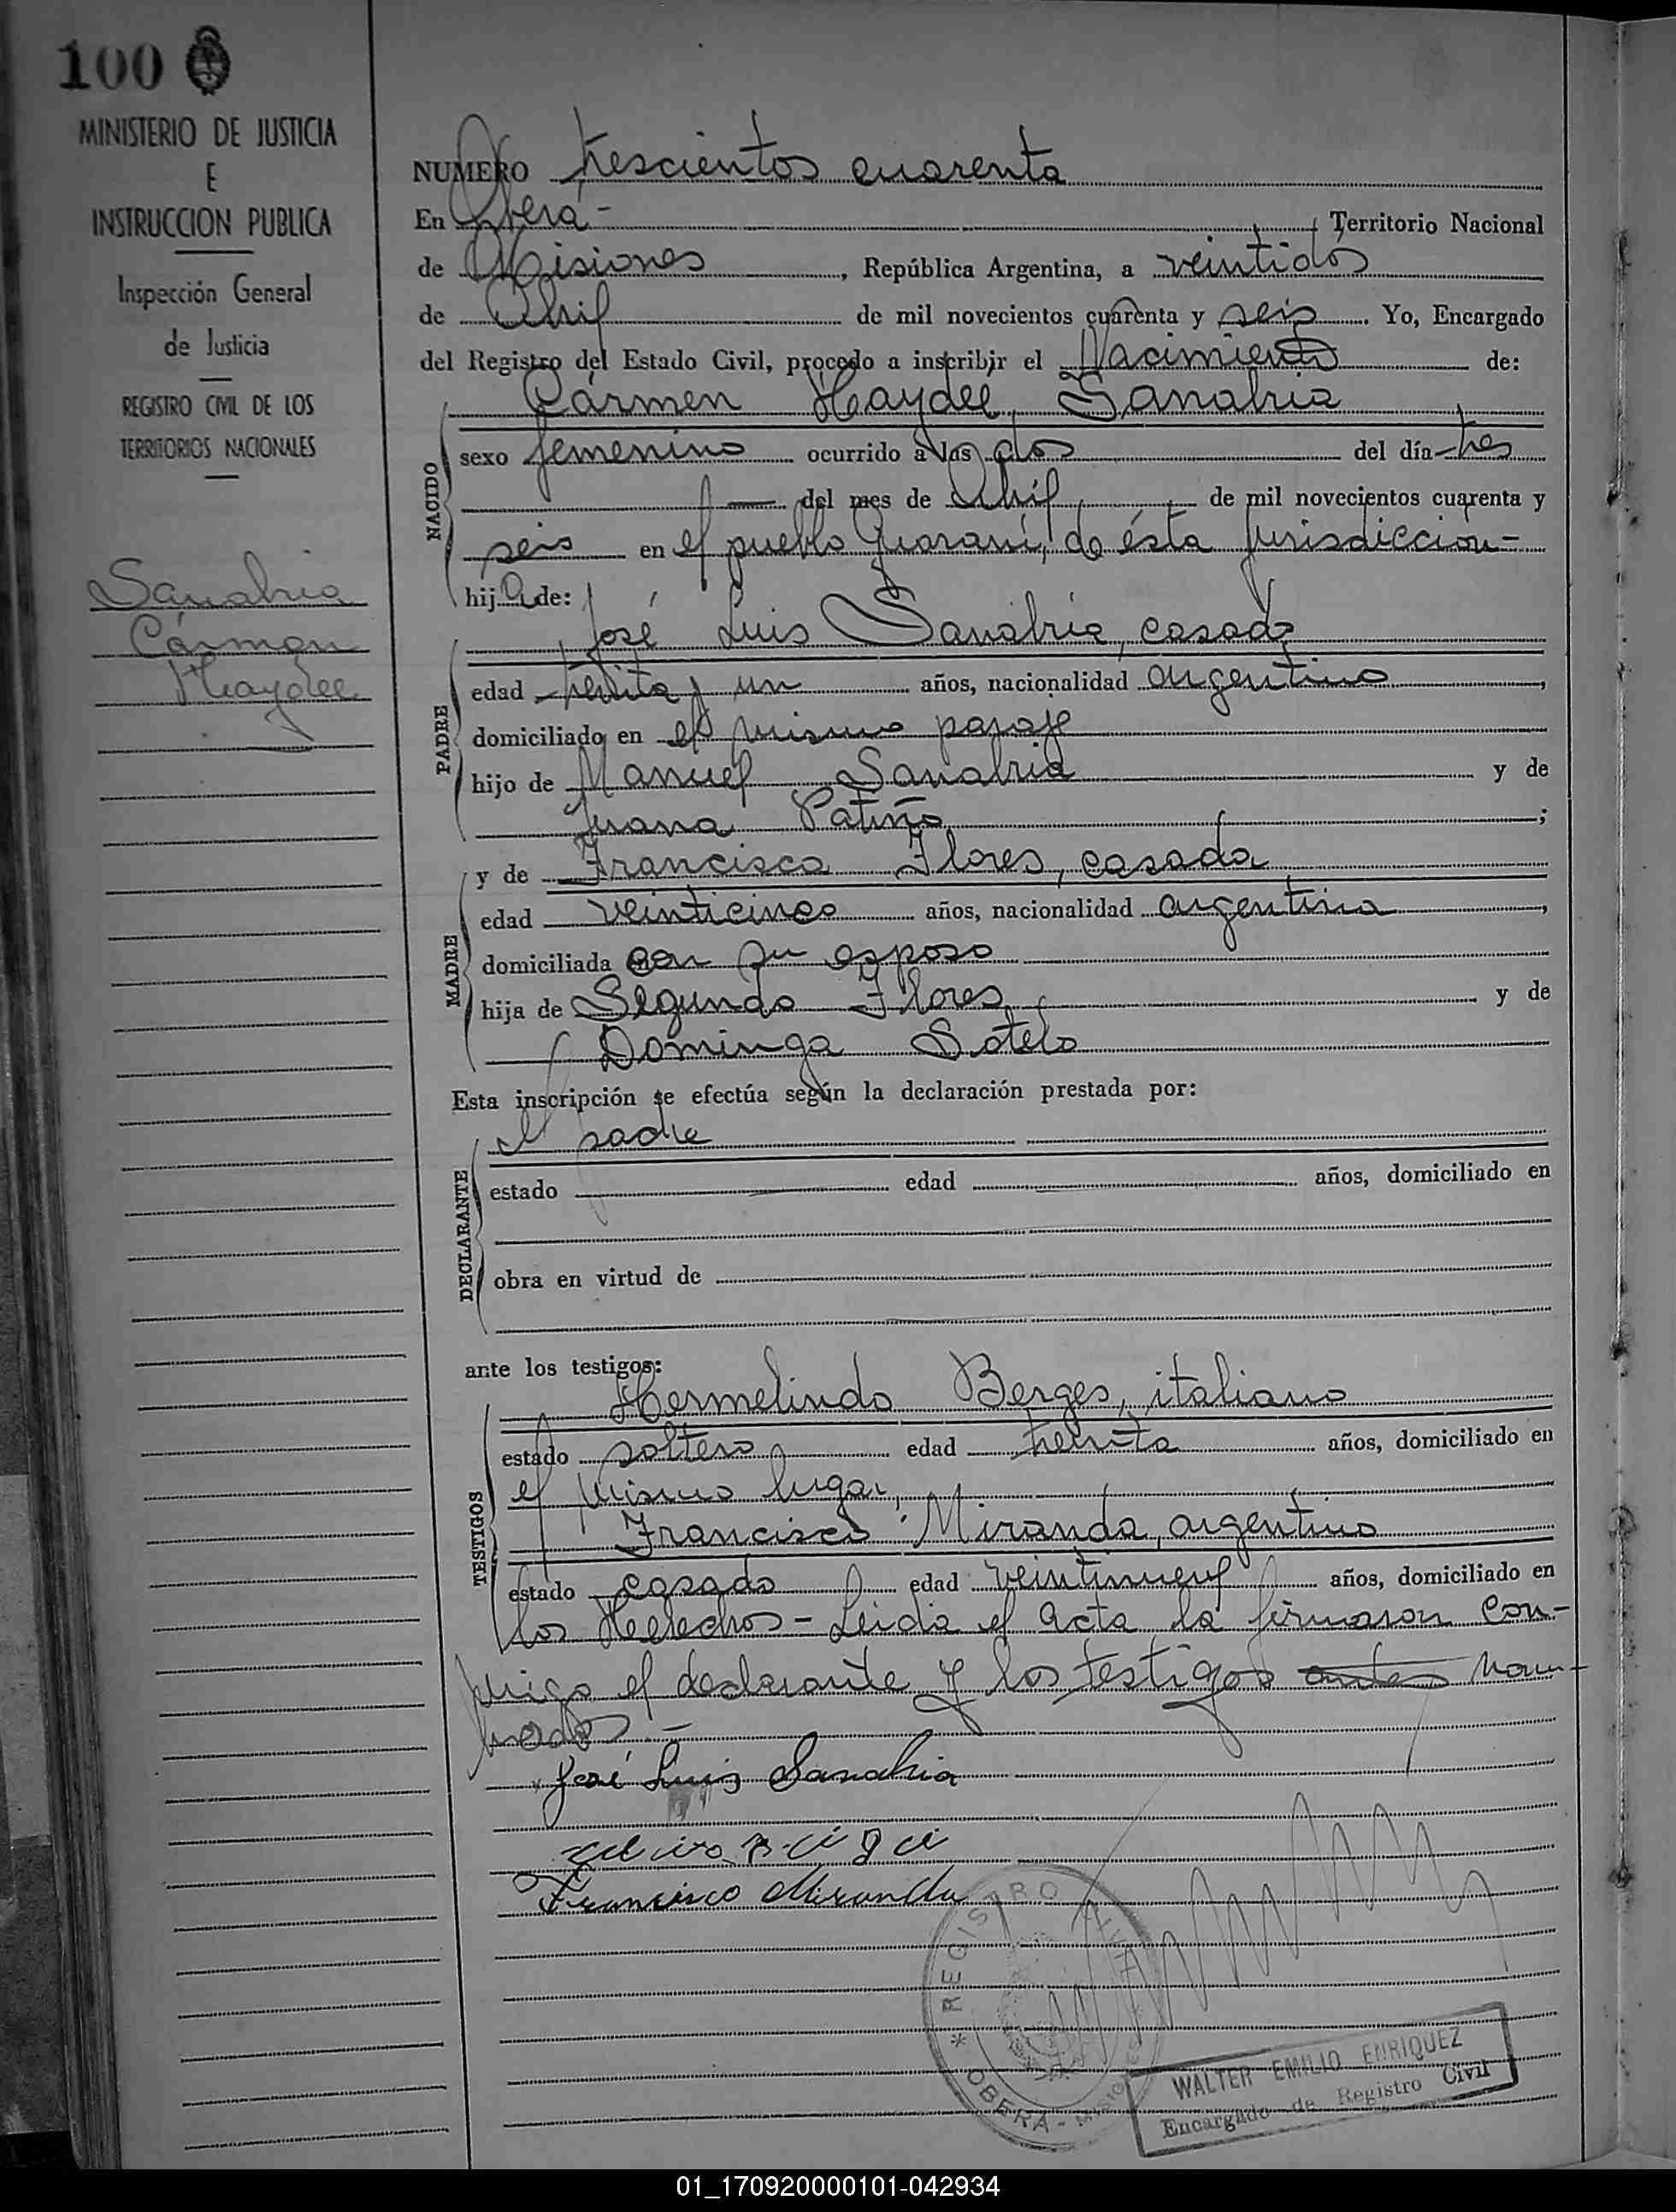 100
MINISTERIO DE JUSTICIA
E
INSTRUCCION PUBLICA
Inspección General
de Justicia
REGISTRO CIVIL DE LOS
TERRITORIOS NACIONALES
Sanabria
Cármen
Haydee
NUMERO trescientos cuarenta
En Oberá - Territorio Nacional
de Misiones, República Argentina, a veintidos
de Abril de mil novecientos cuarenta y seis. Yo, Encargado
del Registro del Estado Civil, procedo a inscribir el Nacimiento de:
Cármen Haydee Sanabria
NACIDO
sexo femenino ocurrido a las dos del día tres
del mes de Abril de mil novecientos cuarenta y
seis en el pueblo Guaraní, de ésta jurisdiccion-
hija de:
José Luis Sanabria, casado
PADRE
edad treinta y un años, nacionalidad argentino,
domiciliado en el mismo paraje
hijo de Manuel Sanabria y de
Juana Patiño;
y de Francisca Flores, casada
MADRE
edad veinticinco años, nacionalidad argentina,
domiciliada con su esposo
hija de Segundo Flores y de
Dominga Sotelo
Esta inscripción se efectúa según la declaración prestada por:
el padre
DECLARANTE
estado edad años, domiciliado en
obra en virtud de
ante los testigos:
Hermelindo Berges, italiano
TESTIGOS
estado soltero edad treinta años, domiciliado en
el mismo lugar,
Francisco Miranda, argentino
estado casado edad veintinueve años, domiciliado en
los Helechos - Leida el acta la firmaron con-
migo el declarante y los testigos antes nom-
brados -
José Luis Sanabria
Francisco Miranda
REGISTRO CIVIL
* OBERA - MISIONES
WALTER EMILIO ENRIQUEZ
Encargado de Registro Civil
01_170920000101-042934